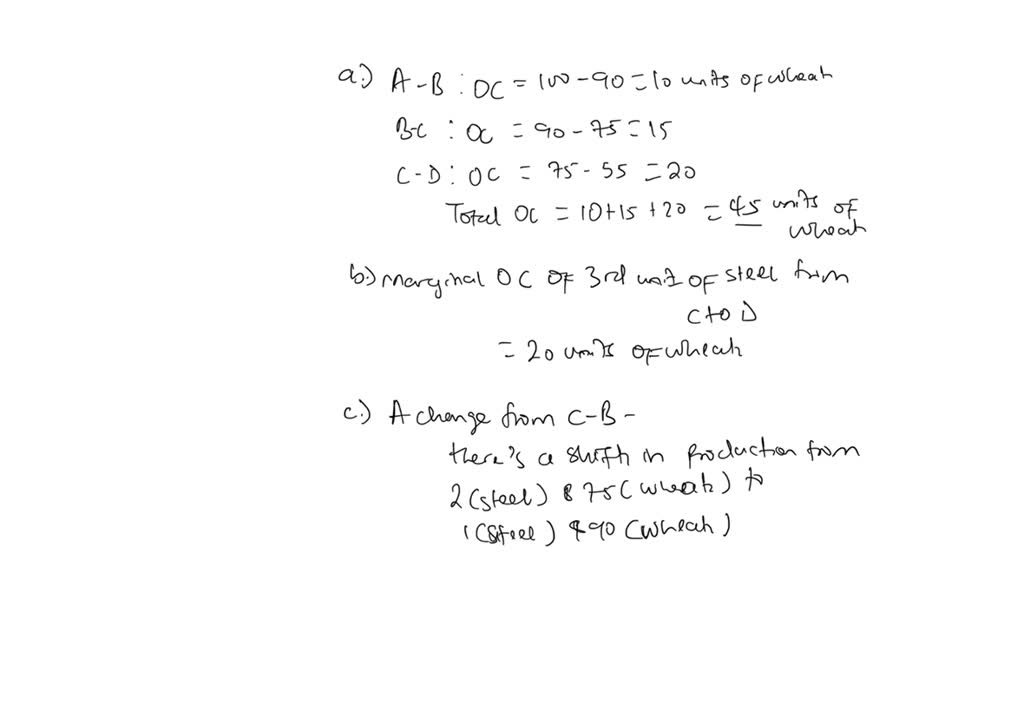 a.) A-B : OC = 100-90 = 10 units of wheat
B-C : OC = 90-75 = 15
C-D : OC = 75-55 = 20
Total OC = 10+15+20 = 45 units of
wheat
b.) marginal OC OF 3rd unit of steel from
C to D
= 20 units of wheat
c.) A change from C-B -
there's a shift in production from
2 (steel) & 75 (wheat) to
1 (steel) & 90 (wheat)